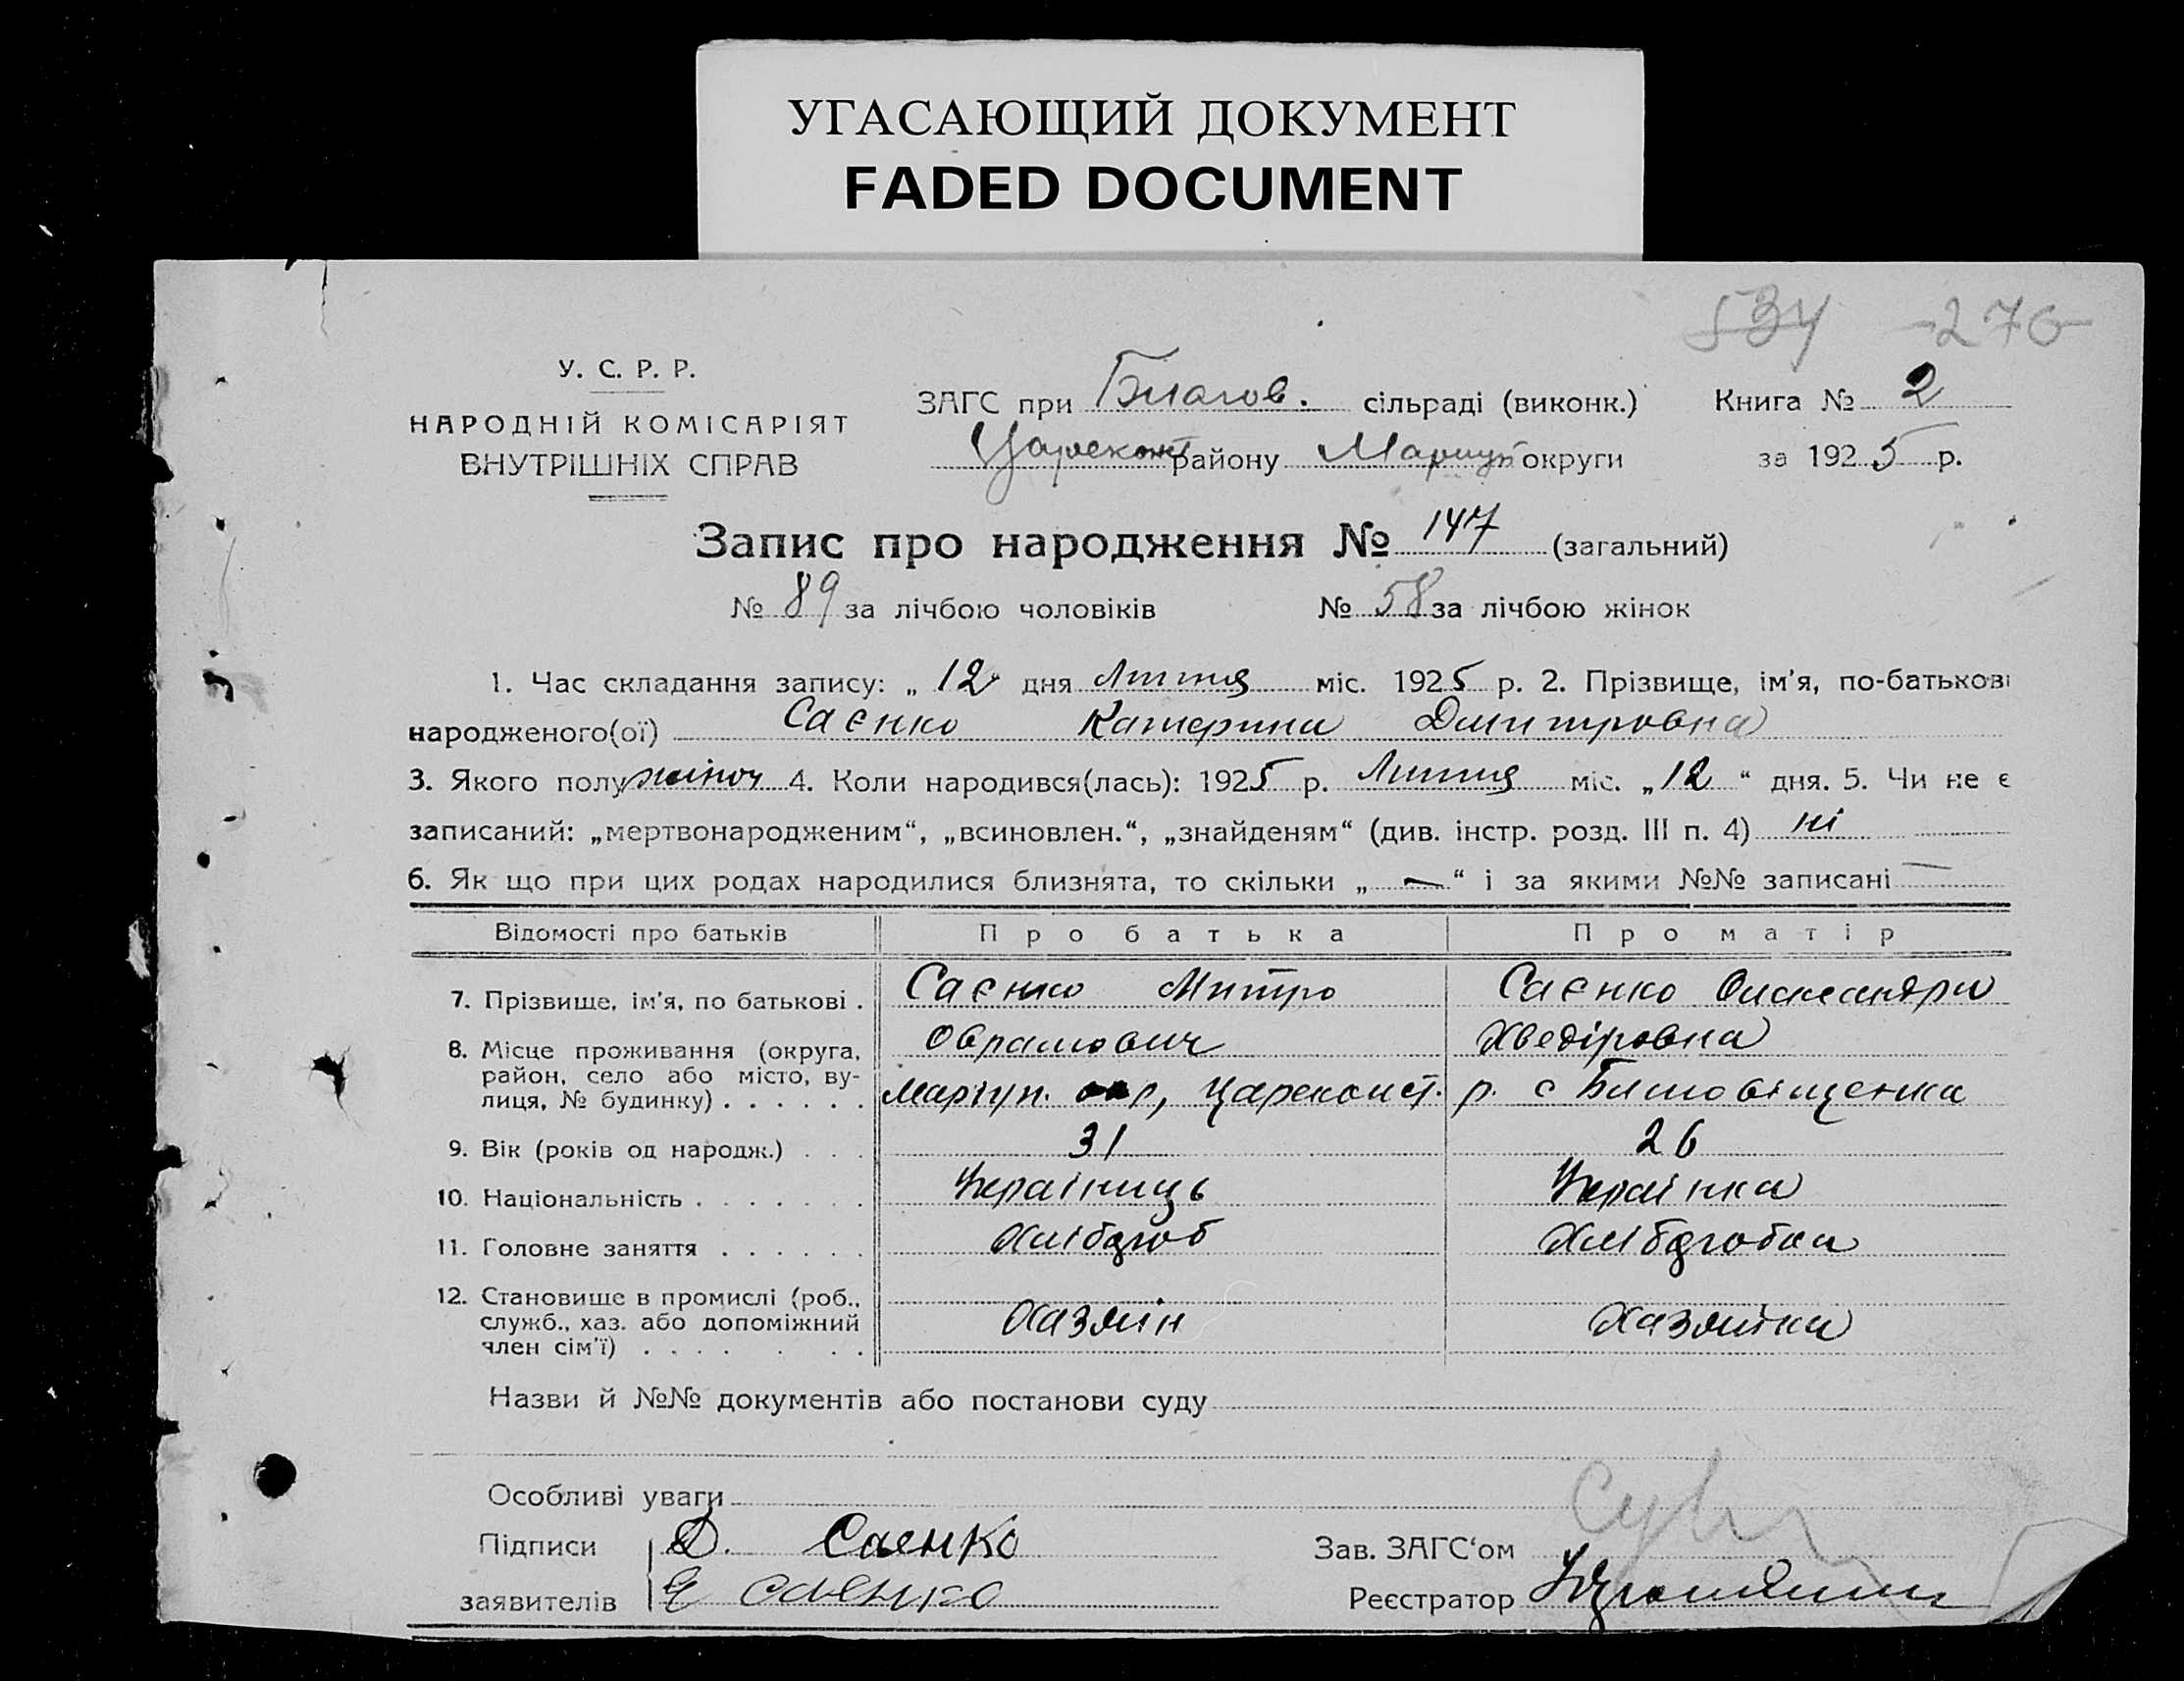 УГАСАЮЩИЙ ДОКУМЕНТ
FADED DOCUMENT
534 -270
У. С. Р. Р.
НАРОДНІЙ КОМІСАРІЯТ
ВНУТРІШНІХ СПРАВ
ЗАГС при Благов. сільраді (виконк.) Книга № 2
Цареконст району Маріуп округи за 1925 р.
Запис про народження № 147 (загальний)
№ 89 за лічбою чоловіків № 58 за лічбою жінок
1. Час складання запису: „ 12 " дня Липця міс. 1925 р. 2. Прізвище, ім'я, по-батькові
народженого(ої) Саєнко Катерина Дмитровна
3. Якого полу жіноч 4. Коли народився(лась): 1925 р. Липця міс. „12" дня. 5. Чи не є
записаний: „мертвонародженим“, „всиновлен.“, „знайденям“ (див. інстр. розд. III п. 4) ні
6. Як що при цих родах народилися близнята, то скільки „ — “ і за якими №№ записані —
Відомості про батьків Про батька Про матір
7. Прізвище, ім'я, по батькові . Саєнко Митро Саєнко Олександра
Оврамович Хведіровна
8. Місце проживання (округа, район, село або місто, вулиця, № будинку) . . . . . . Маріуп. окр, Цареконст. р. с Благовіщенка
9. Вік (років од народж.) . . . 31 26
10. Національність . . . . . . . Україниць Українка
11. Головне заняття . . . . . . Хлібороб Хліборобка
12. Становище в промислі (роб., служб., хаз. або допоміжний член сім'ї) . . . . . . . Хазяїн Хазяйка
Назви й №№ документів або постанови суду
Особливі уваги
Підписи Д. Саенко Зав. ЗАГС‘ом
заявителів Е Саенко Реєстратор